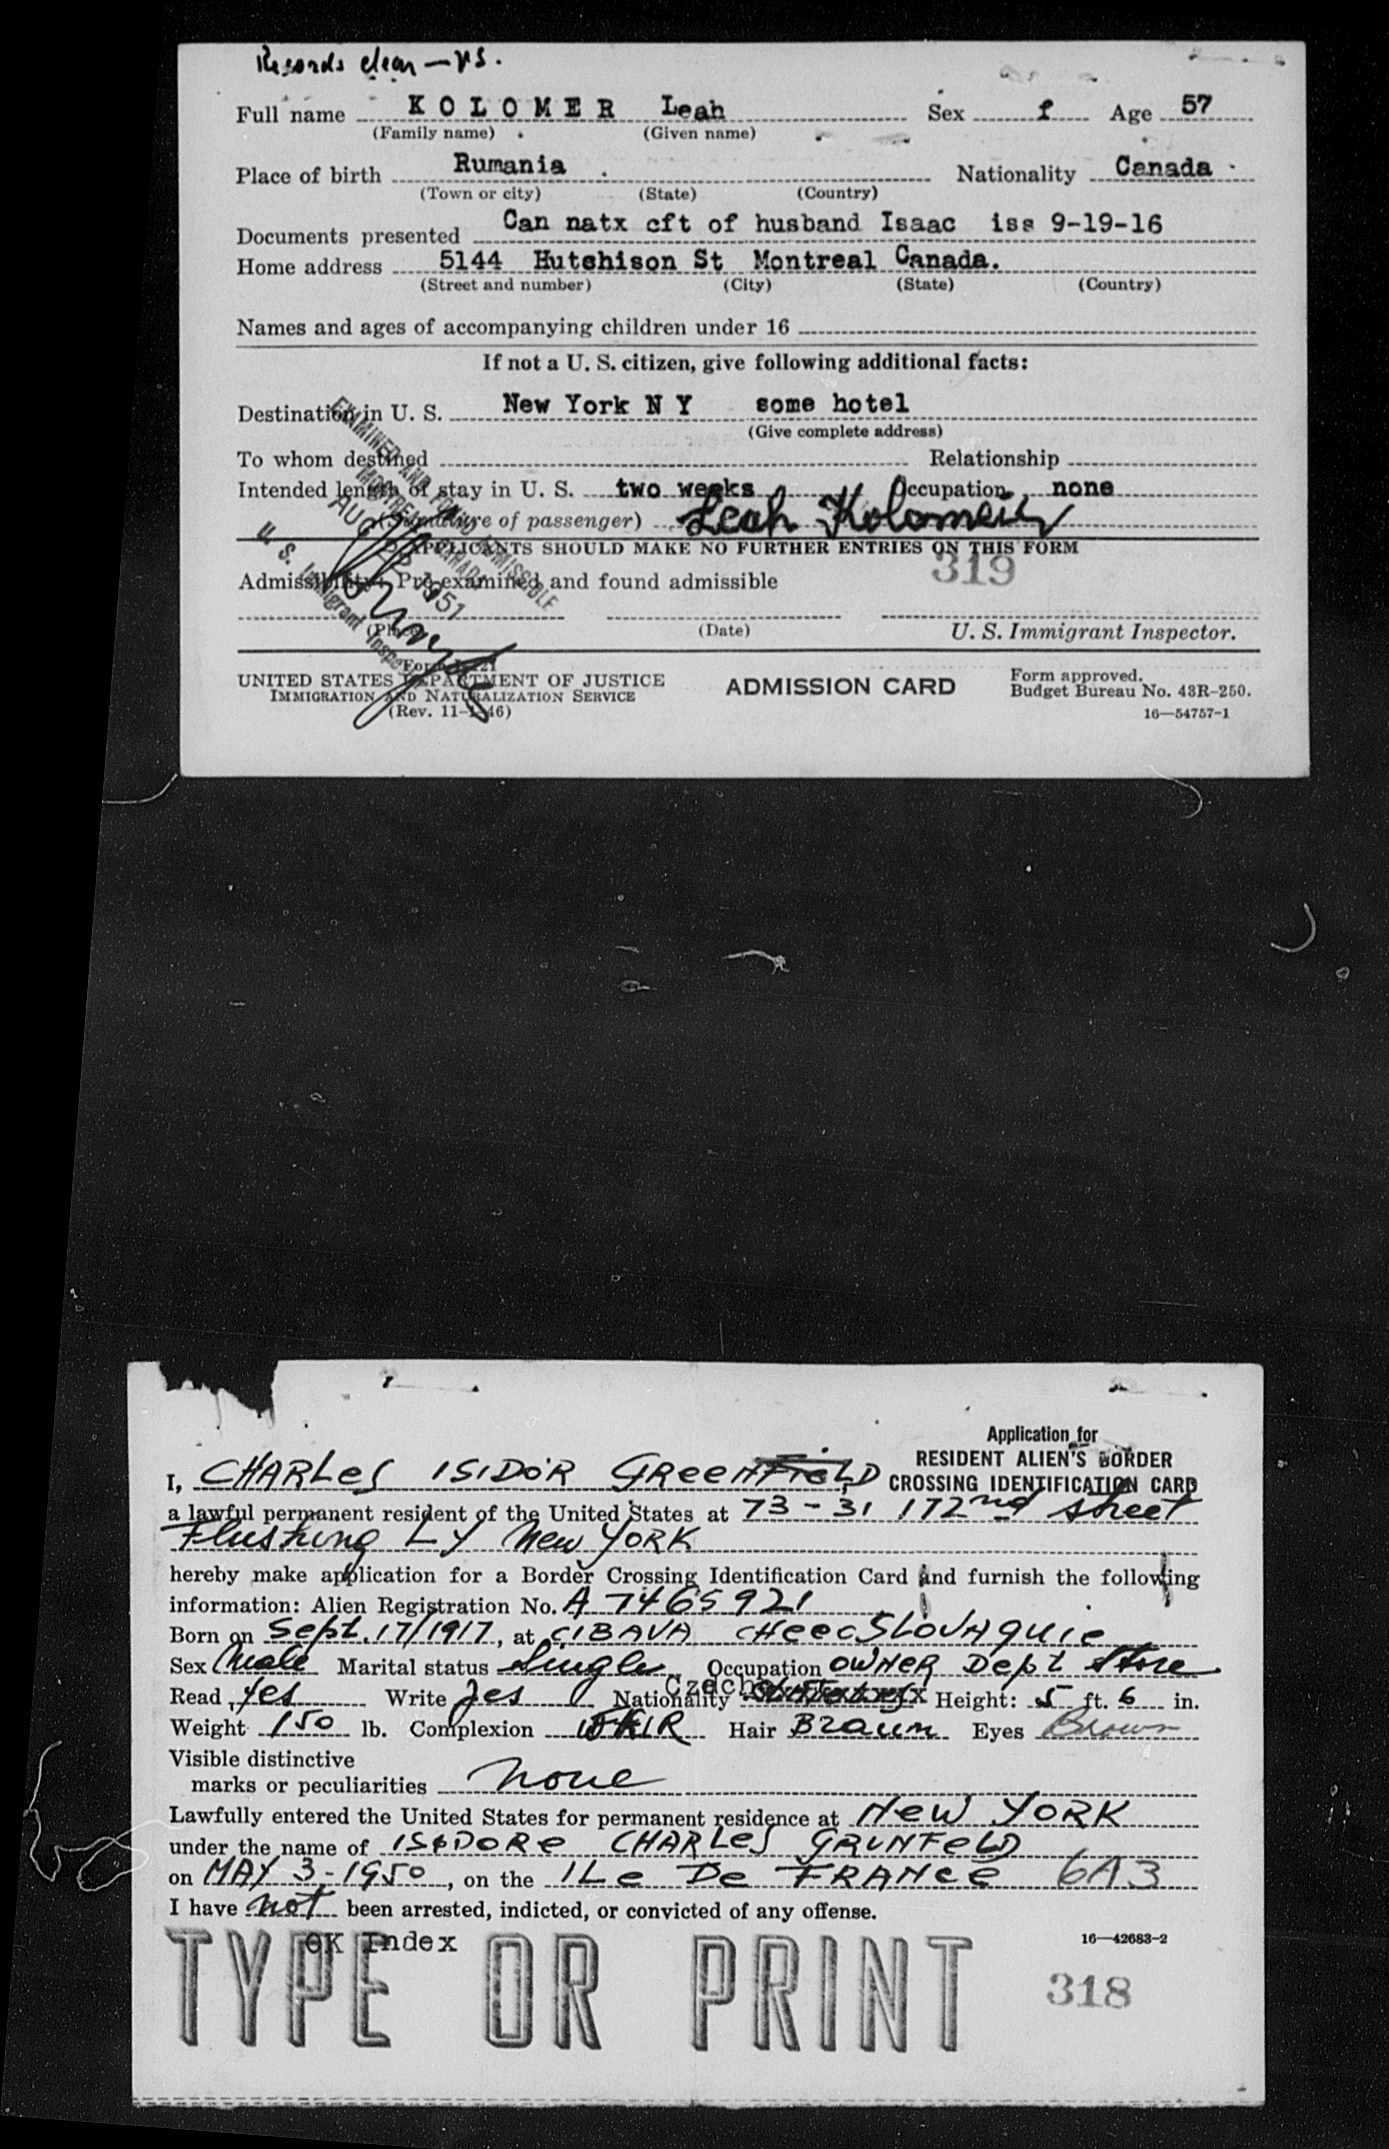 Records clear — vs.
Full name K O L O M E R Leah Sex f Age 57
(Family name) (Given name)
Place of birth Rumania Nationality Canada
(Town or city) (State) (Country)
Documents presented Can natx cft of husband Isaac iss 9-19-16
Home address 5144 Hutchison St Montreal Canada.
(Street and number) (City) (State) (Country)
Names and ages of accompanying children under 16
If not a U. S. citizen, give following additional facts:
Destination in U. S. New York N Y some hotel
(Give complete address)
To whom destined Relationship
Intended length of stay in U. S. two weeks Occupation none
(Signature of passenger) Leah Kolomeir
APPLICANTS SHOULD MAKE NO FURTHER ENTRIES ON THIS FORM
319
Admissibility: Pre-examined and found admissible
EXAMINED AND FOUND ADMISSIBLE
MONTREAL CANADA
AUG 1951
U. S. Immigrant Inspector
(Place) (Date) U. S. Immigrant Inspector.
Form I-421
UNITED STATES DEPARTMENT OF JUSTICE
IMMIGRATION AND NATURALIZATION SERVICE
(Rev. 11-1-46)
ADMISSION CARD
Form approved.
Budget Bureau No. 43R-250.
16—54757-1
Application for
RESIDENT ALIEN'S BORDER
CROSSING IDENTIFICATION CARD
I, CHARLES ISIDOR GREENFIELD
a lawful permanent resident of the United States at 73-31 172nd street
Flushing LY New YORK
hereby make application for a Border Crossing Identification Card and furnish the following
information: Alien Registration No. A 7465921
Born on Sept. 17/1917, at CIBAVA CHeecSLOVAquie
Sex Male Marital status Single Occupation OWNER Dept Store
Read yes Write yes Nationality Czecho Height: 5 ft. 6 in.
Weight 150 lb. Complexion FAIR Hair Braun Eyes Brown
Visible distinctive
marks or peculiarities none
Lawfully entered the United States for permanent residence at New YORK
under the name of ISIDORE CHARLES GRUNFELD
on MAY 3-1950, on the ILe De FRANCe 6A3
I have not been arrested, indicted, or convicted of any offense.
OK Index
16—42683-2
TYPE OR PRINT
318